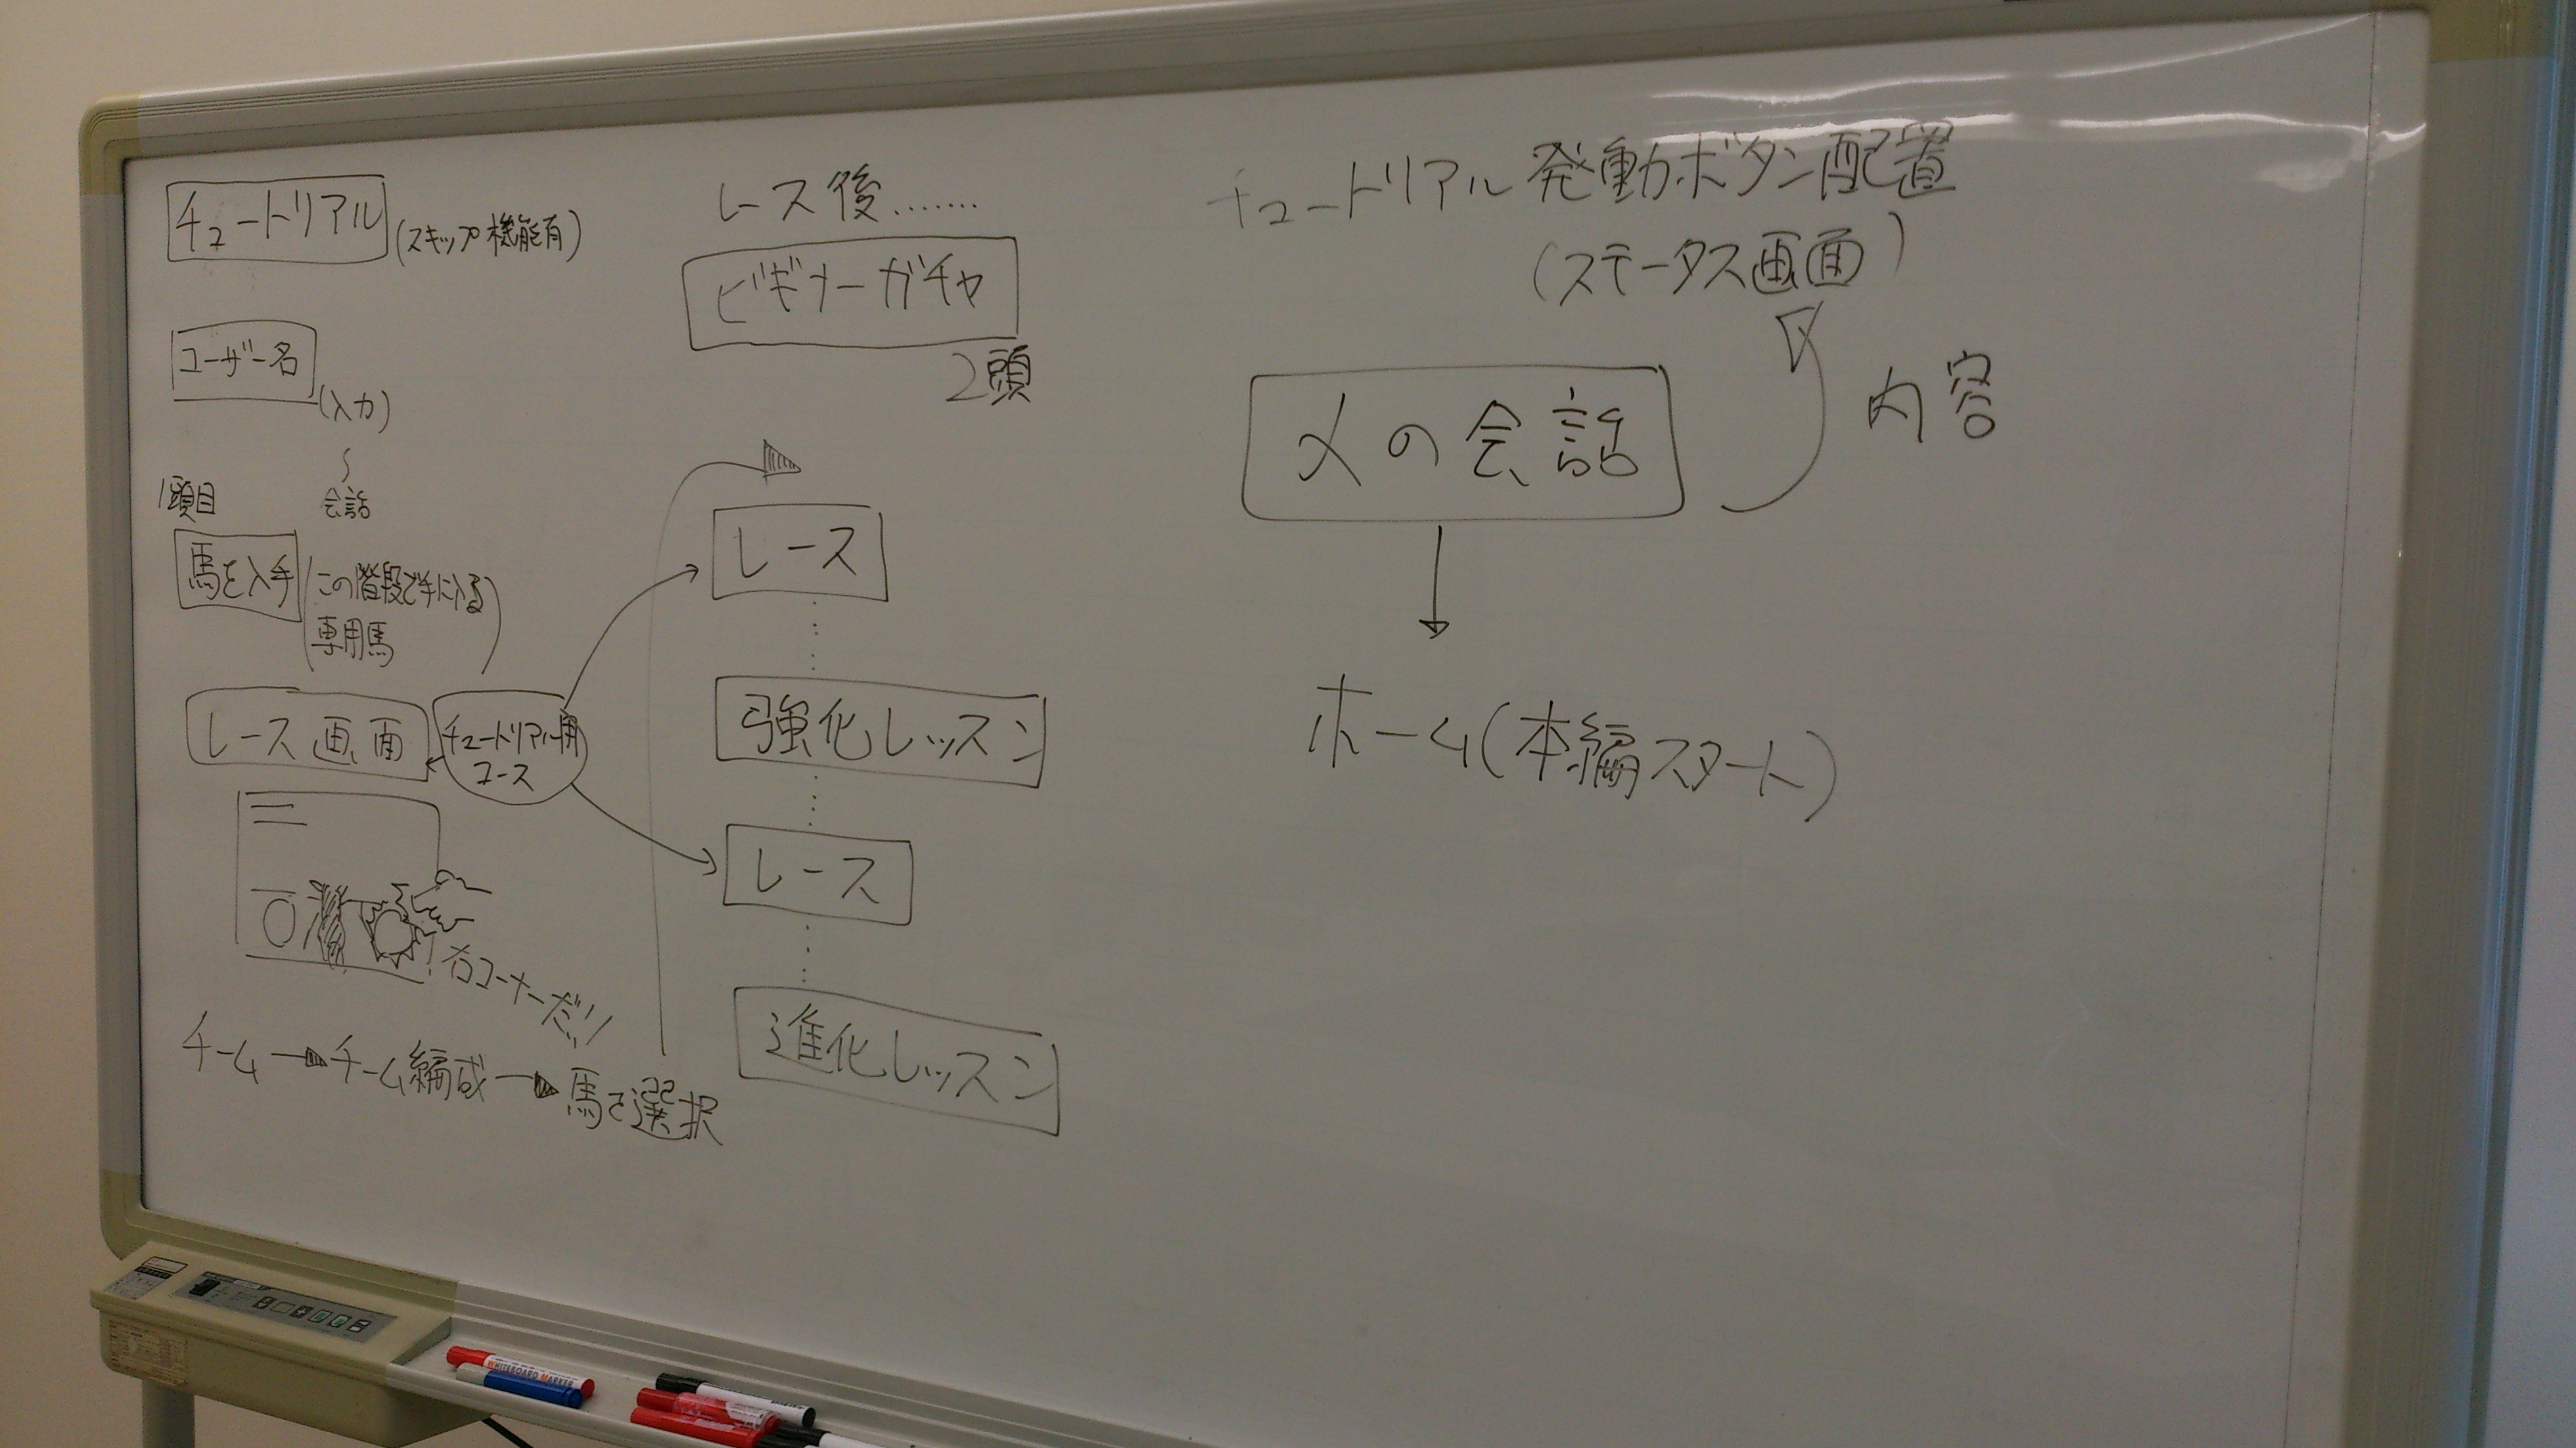 チュートリアル
(スキップ機能有)
ユーザー名
(入力)
〜
会話
1頭目
馬を入手
(この階段で手に入る
専用馬)
レース画面
チュートリアル用
コース
右コーナーだ!!
チーム→チーム編成→馬を選択
レース後.......
ビギナーガチャ
2頭
レース
強化レッスン
レース
進化レッスン
チュートリアル発動ボタン配置
(ステータス画面)
父の会話
内容
ホーム(本編スタート)
WHITEBOARD MARKER